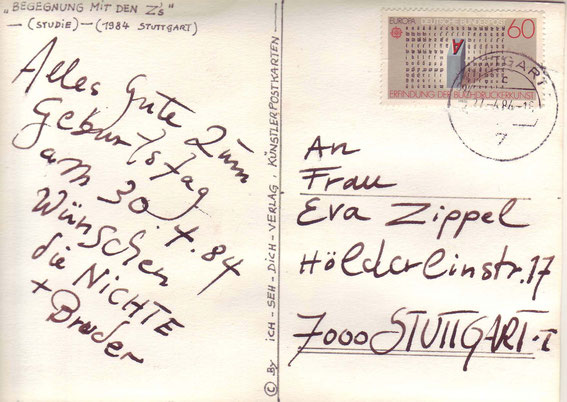 „BEGEGNUNG MIT DEN Z's"
— (STUDIE) — (1984 STUTTGART)
Alles Gute zum
Geburtstag
am 30.4.84
Wünschen
die NICHTE
+ Bruder
© By ICH-SEH-DICH-VERLAG, KÜNSTLERPOSTKARTEN
EUROPA
60
A
ERFINDUNG DER BUCHDRUCKERKUNST
An
Frau
Eva Zippel
Hölderlinstr. 17
7000 STUTTGART-1